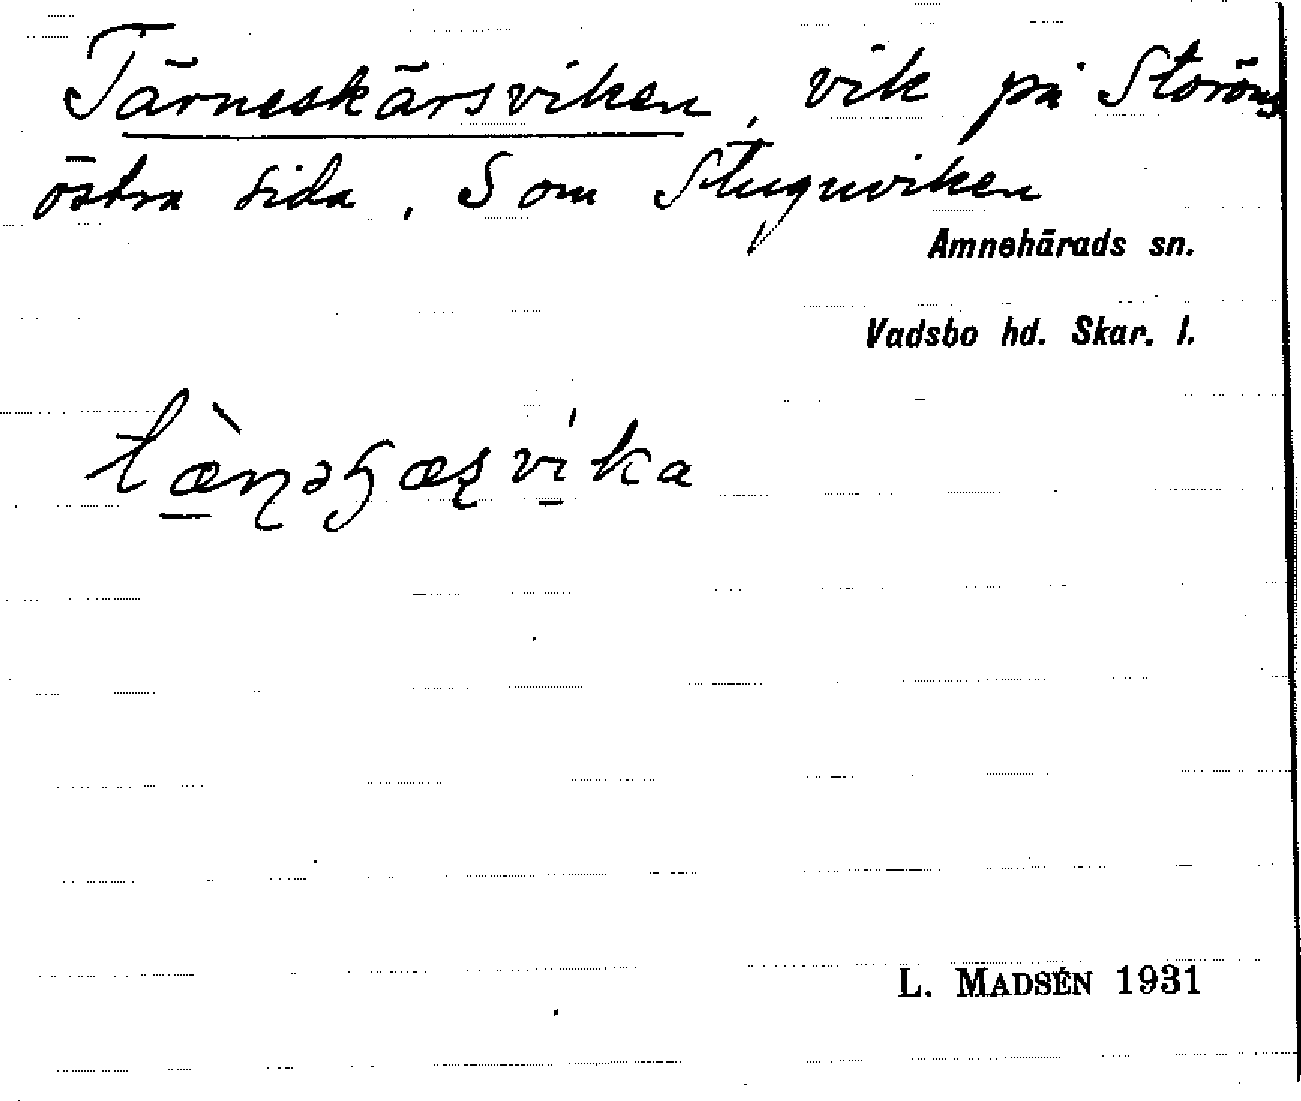 Tärneskärsviken, vik på Storöns
östra sida. Som Stuguviken
Amnehärads sn.
Vadsbo hd. Skar. l.
L. MADSÉN 1931